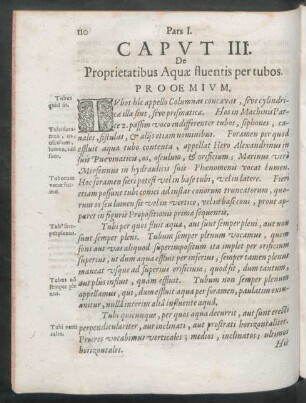 110 Pars I.
CAPVT III.
De
Proprietatibus Aquæ fluentis per tubos.
PROOEMIVM.
Tubus
quid sit.
TVbos hîc appello Columnas concavas, sive cylindricæ
illæ sint, sive prismaticæ. Has in Machinis Parte
2. passim voco indifferenter tubos, siphones, canales,
fistulas, & aliis etiam nominibus. Foramen per quod
effluit aqua tubo contenta, appellat Hero Alexandrinus in
suis Pneumaticis, os, osculum, & orificium; Marinus verò
Mersennus in hydraulicis suis Phænomenis vocat lumen.
Hoc foramen fieri potest vel in base tubi, vel in latere. Fieri
etiam possunt tubi conici ad instar conorum truncatorum, quorum
os seu lumen sit vel in vertice, vel in basi coni, prout
apparet in figuris Propositionis primæ sequentis.
Tubi per quos fluit aqua, aut sunt semper pleni, aut non
sunt semper pleni. Tubum semper plenum vocamus, quem
sive aut vas aliquod superimpositum ita implet per orificium
superius, ut dum aqua effluit per inferius, semper tamen plenus
maneat usque ad superius orificium; quod fit, dum tantum
aut plus influit, quam effluit. Tubum non semper plenum
appellamus, qui, dum effluit aqua per foramen, paulatim exinanitur,
nulla interim aliâ influente aquâ.
Tubi quicunque, per quos aqua decurrit, aut sunt erecti
perpendiculariter, aut inclinati, aut prostrati horizontaliter.
Priores vocabimus verticales; medios, inclinatos; ultimos
horizontales.
Hic